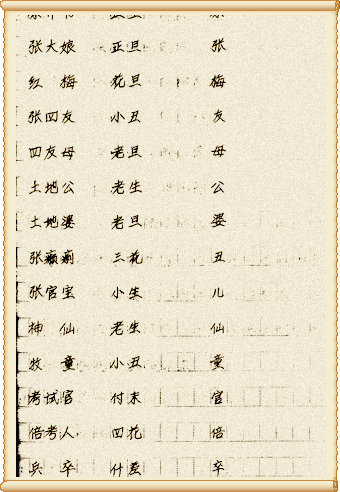 张大娘 正旦 张
红梅 花旦 梅
张四友 小丑 友
四友母 老旦 母
土地公 老生 公
土地婆 老旦 婆
张癞痢 三花 丑
张官宝 小生 儿
神仙 老生 仙
牧童 小丑 童
考试官 付末 官
陪考人 四花 陪
兵卒 什差 卒